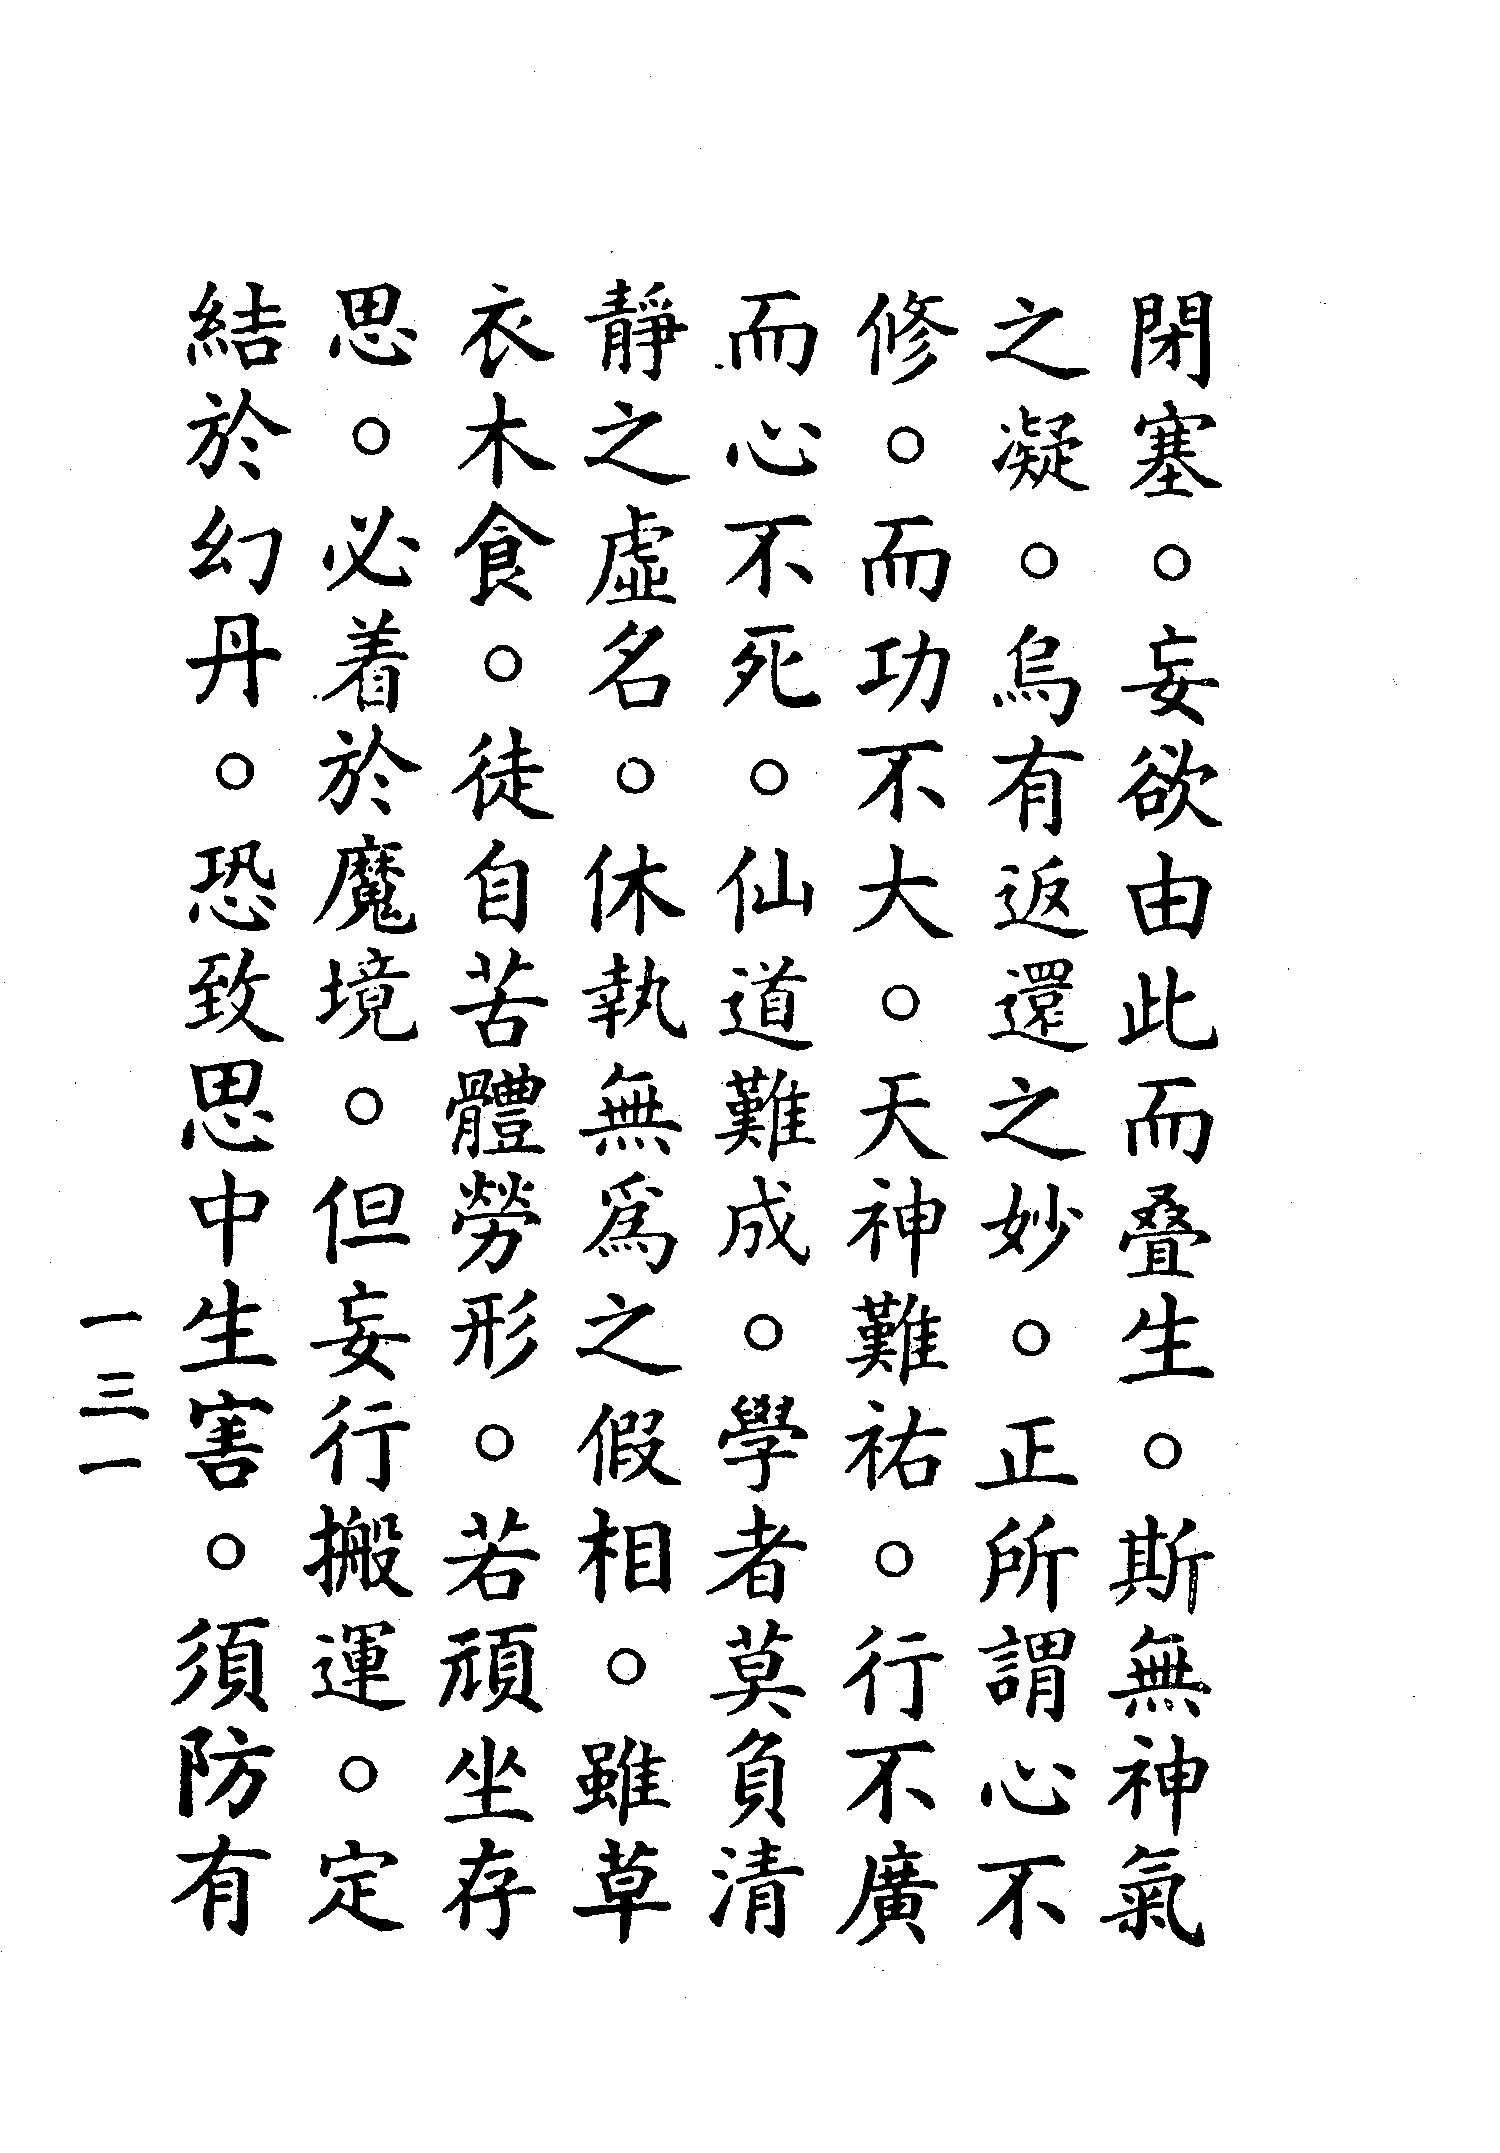 閉塞。妄欲由此而叠生。斯無神氣
之凝。烏有返還之妙。正所謂心不
修。而功不大。天神難祐。行不廣
而心不死。仙道難成。學者莫負清
靜之虛名。休執無爲之假相。雖草
衣木食。徒自苦體勞形。若頑坐存
思。必着於魔境。但妄行搬運。定
結於幻丹。恐致思中生害。須防有
一三一